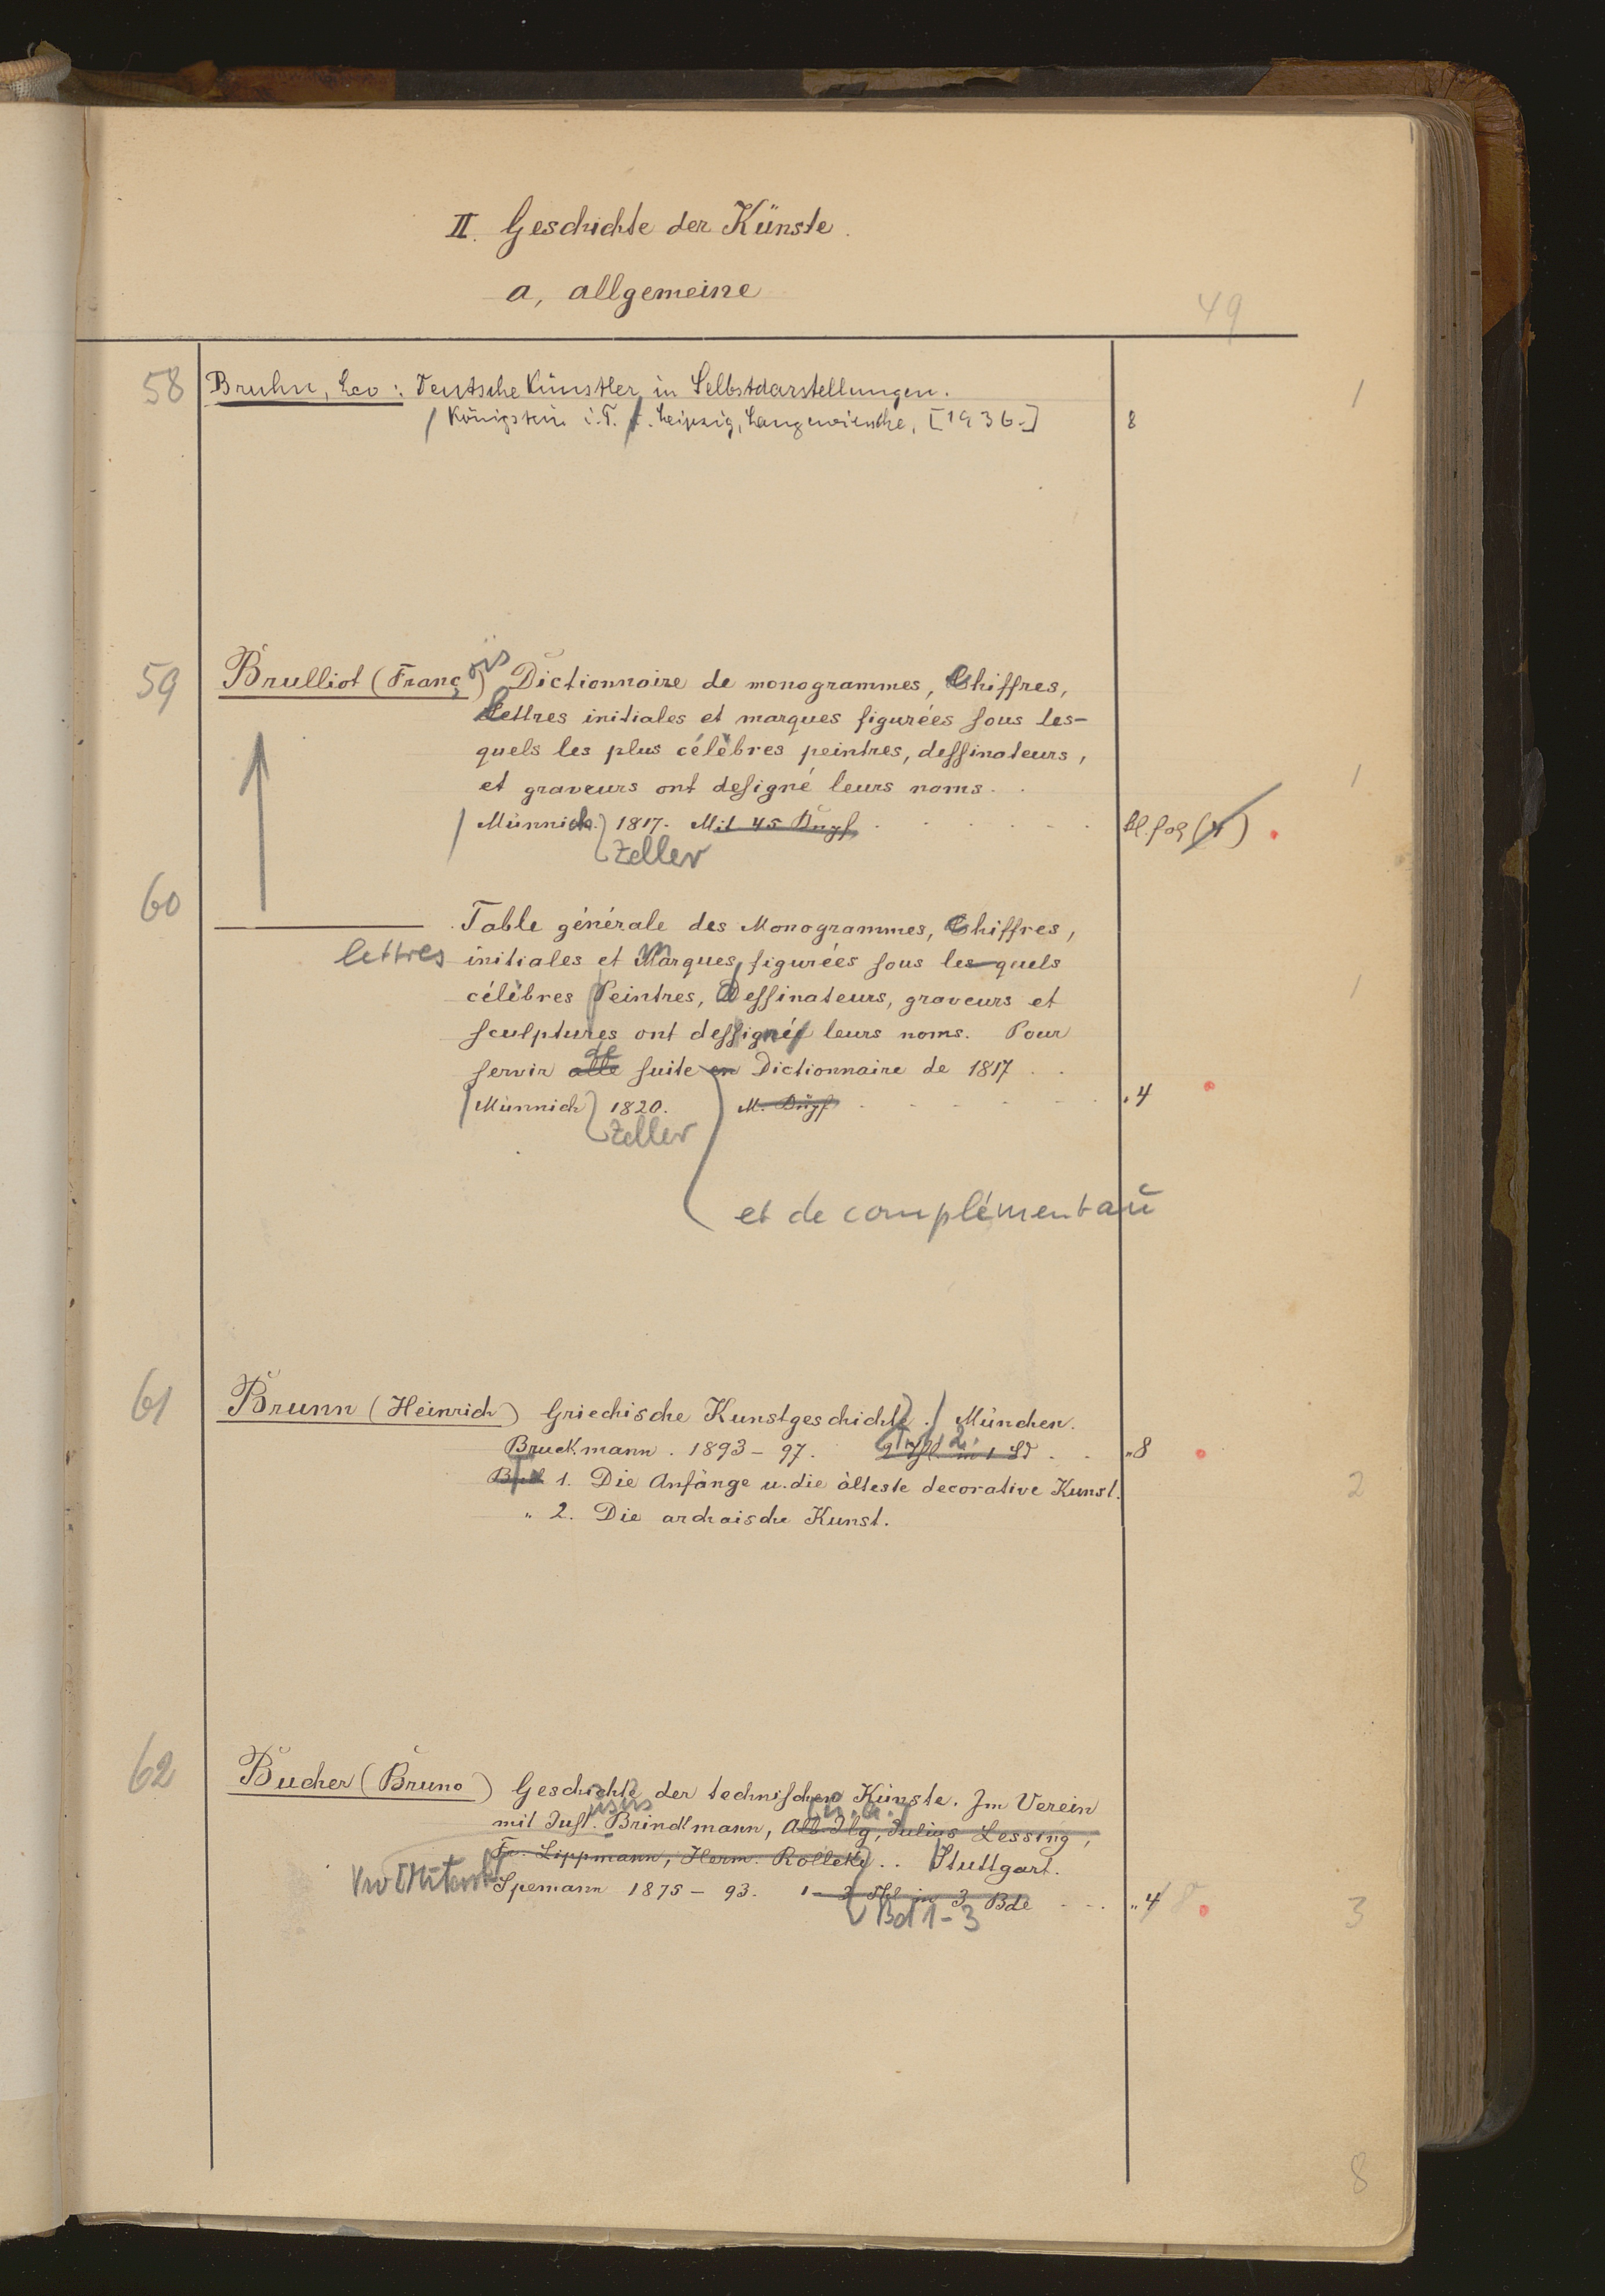 II. Geschichte der Künste.
a, allgemeine
49
58 Bruhn, Leo: Deutsche Künstler in Selbstdarstellungen. 1
/ Königstein i. T. Leipzig, Langewiesche, [1936.] 8
59 Brulliot (François) Dictionnaire de monogrammes, chiffres,
lettres initiales et marques figurées sous les-
quels les plus célèbres peintres, dessinateurs,
et graveurs ont designé leurs noms. 1
/ Münnich. 1817. Mit 45 Kl. fol (4)
Zeller
60 Table générale des Monogrammes, chiffres,
lettres initiales et marques, figurées sous lesquels 1
célèbres Peintres, Dessinateurs, graveurs et
sculptures ont dessignés leurs noms. Pour
servir de suite en Dictionnaire de 1817
/ Münnich 1820. „ 4
Zeller
et de complément au
61 Brunn (Heinrich) Griechische Kunstgeschichte. / München.
Bruckmann. 1893 – 97. „ 8
1. Die Anfänge u. die älteste decorative Kunst. 2
„ 2. Die archaische Kunst.
62 Bucher (Bruno) Geschichte der technischen Künste. Im Verein
mit Just. Brinckmann, Alb. Ilg, Julius Lessing,
u. a.
Fr. Lippmann, Herm. Rollett .. Stuttgart.
Spemann 1875 – 93. 1 – 3 in 3 Bde „ 4 8 3
Bd 1-3
8